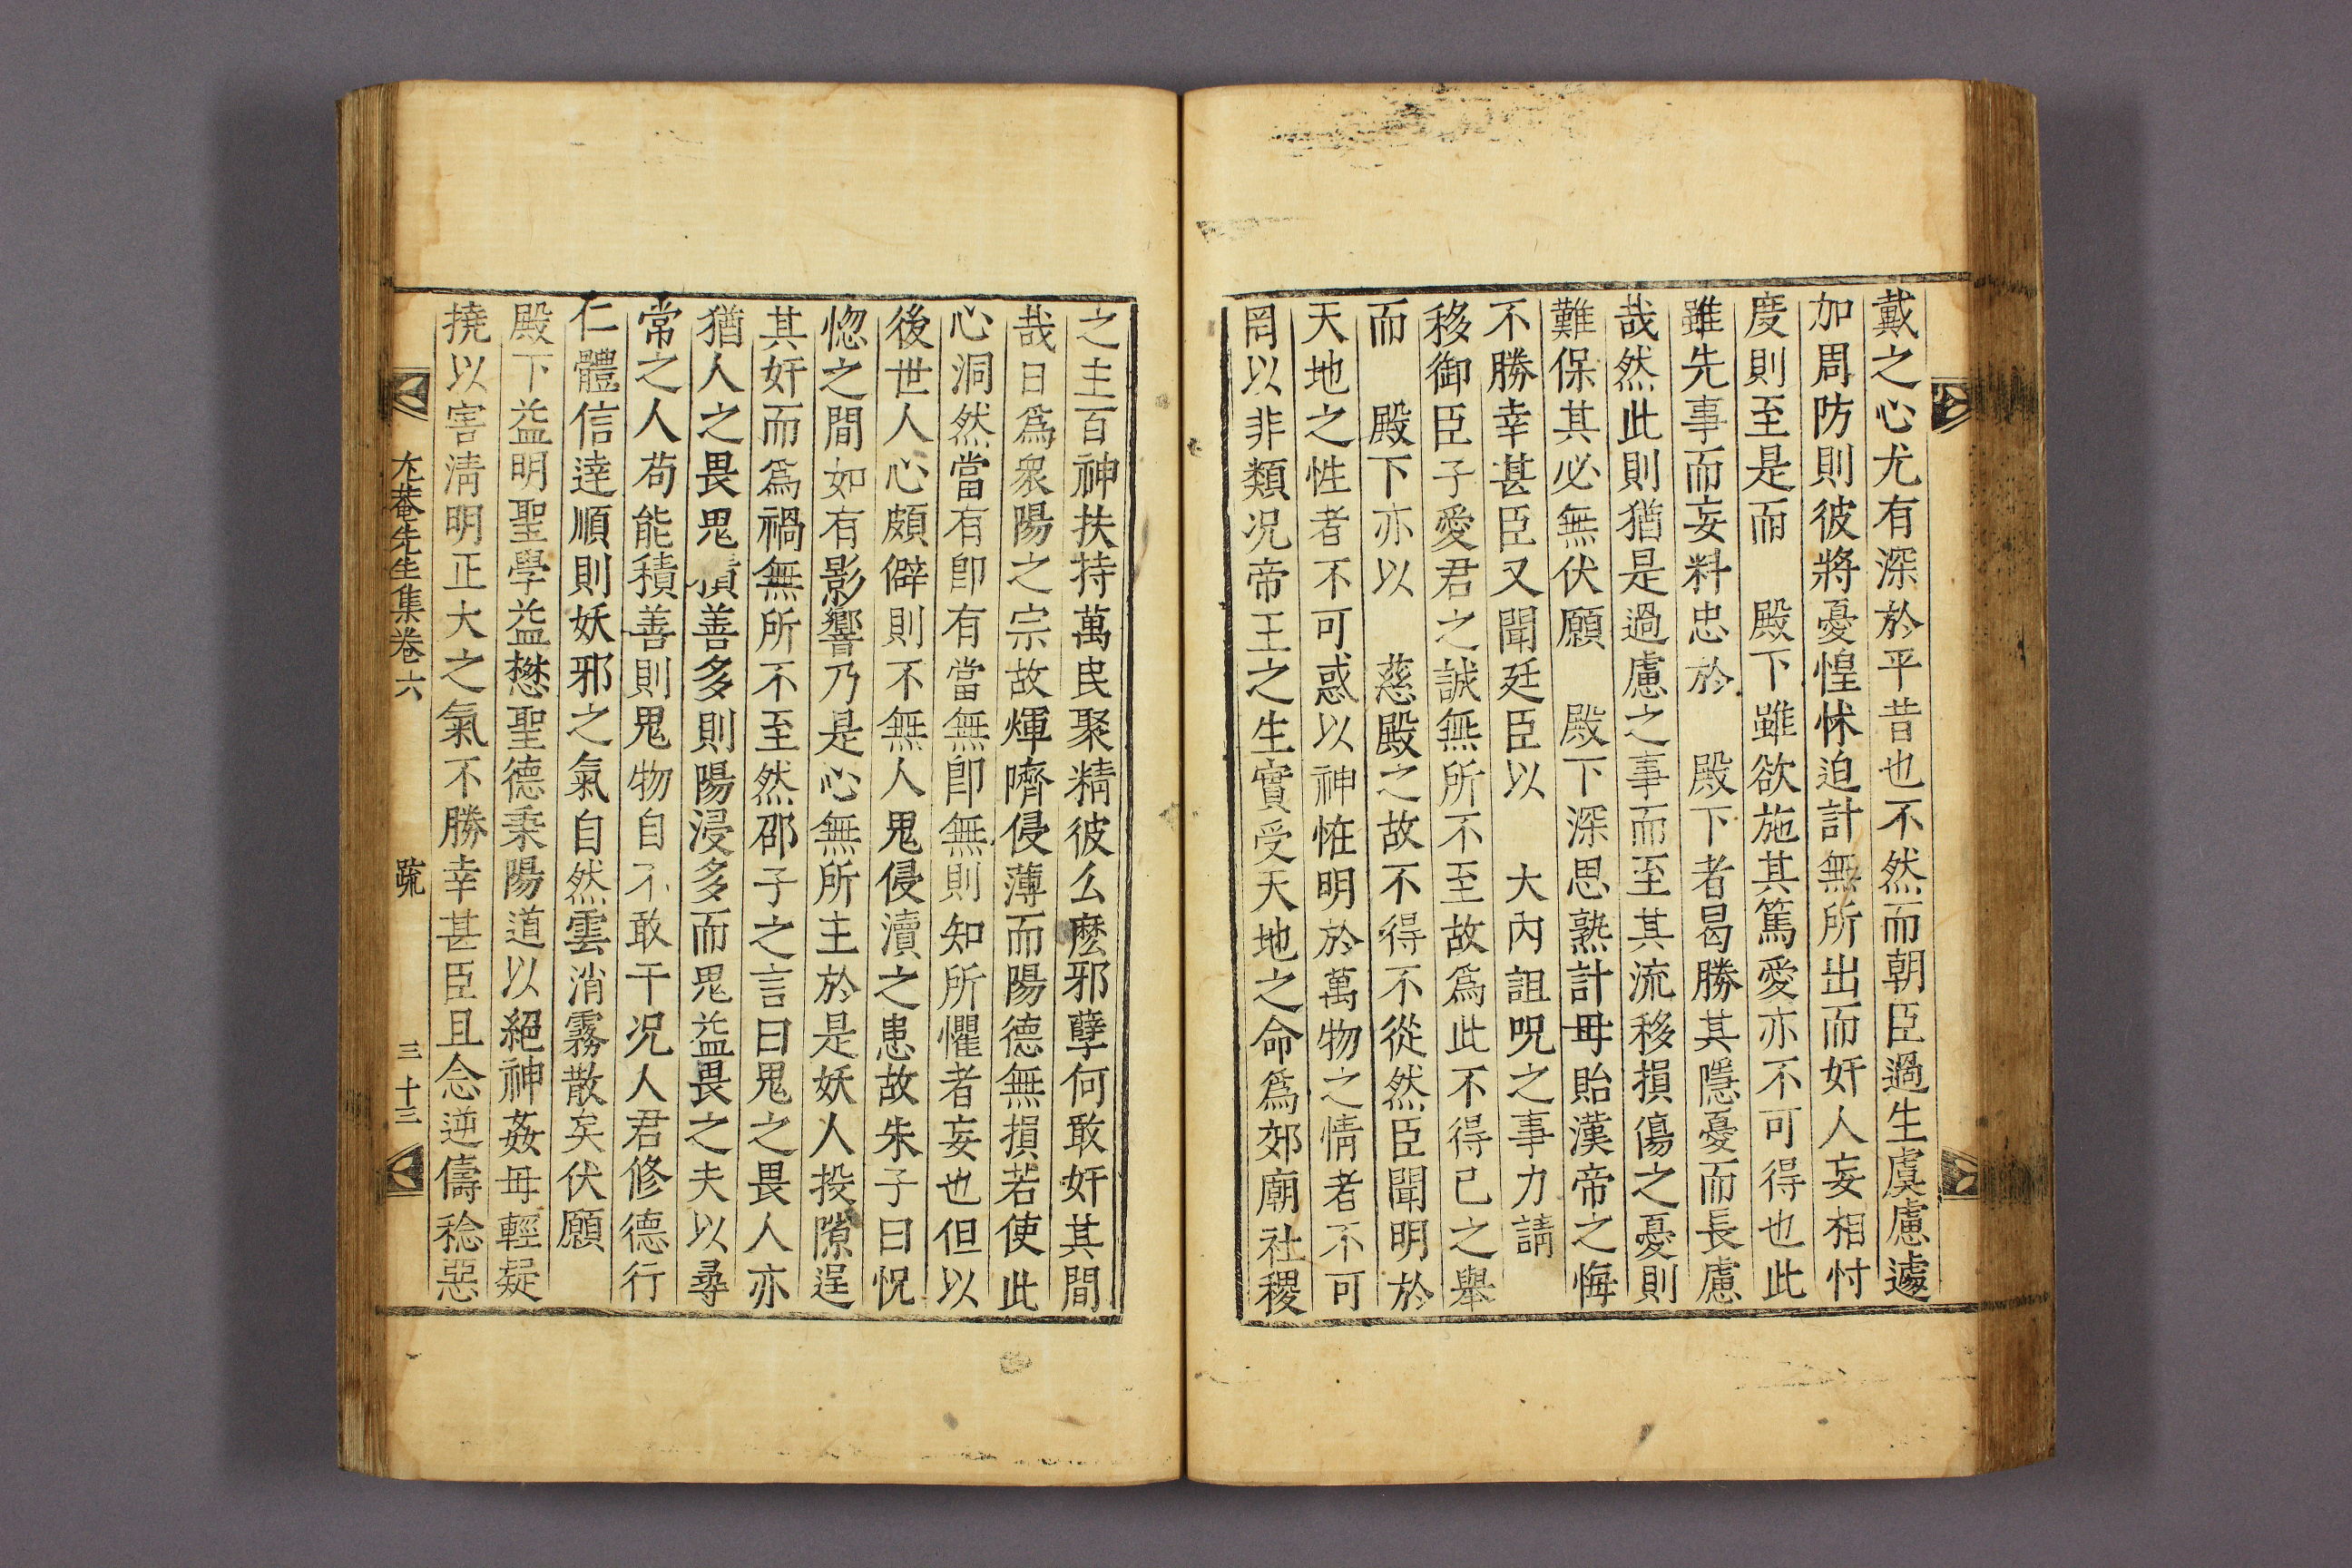 戴之心尤有深於平昔也不然而朝臣過生虞慮遽
加周防則彼將憂惶怵迫計無所出而奸人妄相忖
度則至是而 殿下雖欲施其篤愛亦不可得也此
雖先事而妄料忠於 殿下者曷勝其隱憂而長慮
哉然此則猶是過慮之事而至其流移損傷之憂則
難保其必無伏願 殿下深思熟計毋貽漢帝之悔
不勝幸甚臣又聞廷臣以 大內詛呪之事力請
移御臣子愛君之誠無所不至故爲此不得已之舉
而 殿下亦以 慈殿之故不得不從然臣聞明於
天地之性者不可惑以神怪明於萬物之情者不可
罔以非類况帝王之生實受天地之命爲郊廟社稷
之主百神扶持萬民聚精彼么麽邪孽何敢奸其間
哉日爲衆陽之宗故煇隮侵薄而陽德無損若使此
心洞然當有卽有當無卽無則知所懼者妄也但以
後世人心頗僻則不無人鬼侵瀆之患故朱子曰怳
惚之間如有影響乃是心無所主於是妖人投隙逞
其奸而爲禍無所不至然邵子之言曰鬼之畏人亦
猶人之畏鬼積善多則陽浸多而鬼益畏之夫以尋
常之人苟能積善則鬼物自不敢干况人君修德行
仁體信達順則妖邪之氣自然雲消霧散矣伏願
殿下益明聖學益懋聖德秉陽道以絕神姦毋輕疑
撓以害淸明正大之氣不勝幸甚臣且念逆儔稔惡
尤菴先生集卷六 疏 三十三